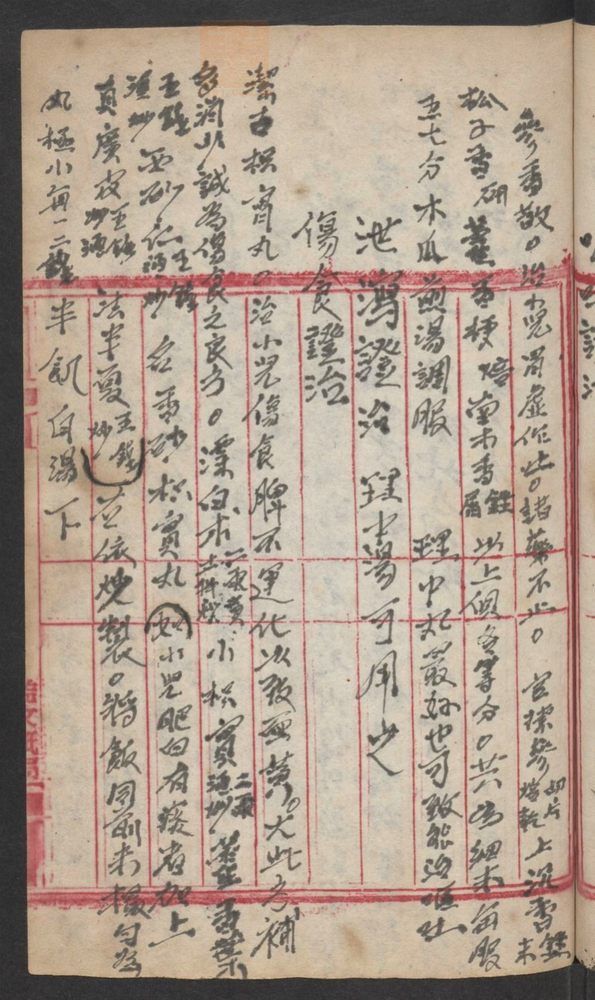 參香散。治小兒胃虛作吐。諸藥不止。官揀參切片焙乾上沉香末錢
松子香研 藿香梗倍 南木香屑錢 以上俱各等分。共為細末每服
五七分木瓜煎湯調服 理中丸最妙也可致能治嘔吐
泄瀉證治 理中湯可用之
傷食證治
潔古枳實丸。治小兒傷食脾不運化以致面黃。尤此方補
多消少誠為傷食之良方。漂白朮一兩黃土拌炒 小枳實二兩酒炒 藿香葉
五錢酒炒 西砂仁五錢酒炒 名香砂枳實丸 如小兒肥白有痰者加上
真廣皮五錢炒酒 法半夏五錢炒 並依炒製。將飯同前末攪勻為
丸極小每一二錢半飢白湯下